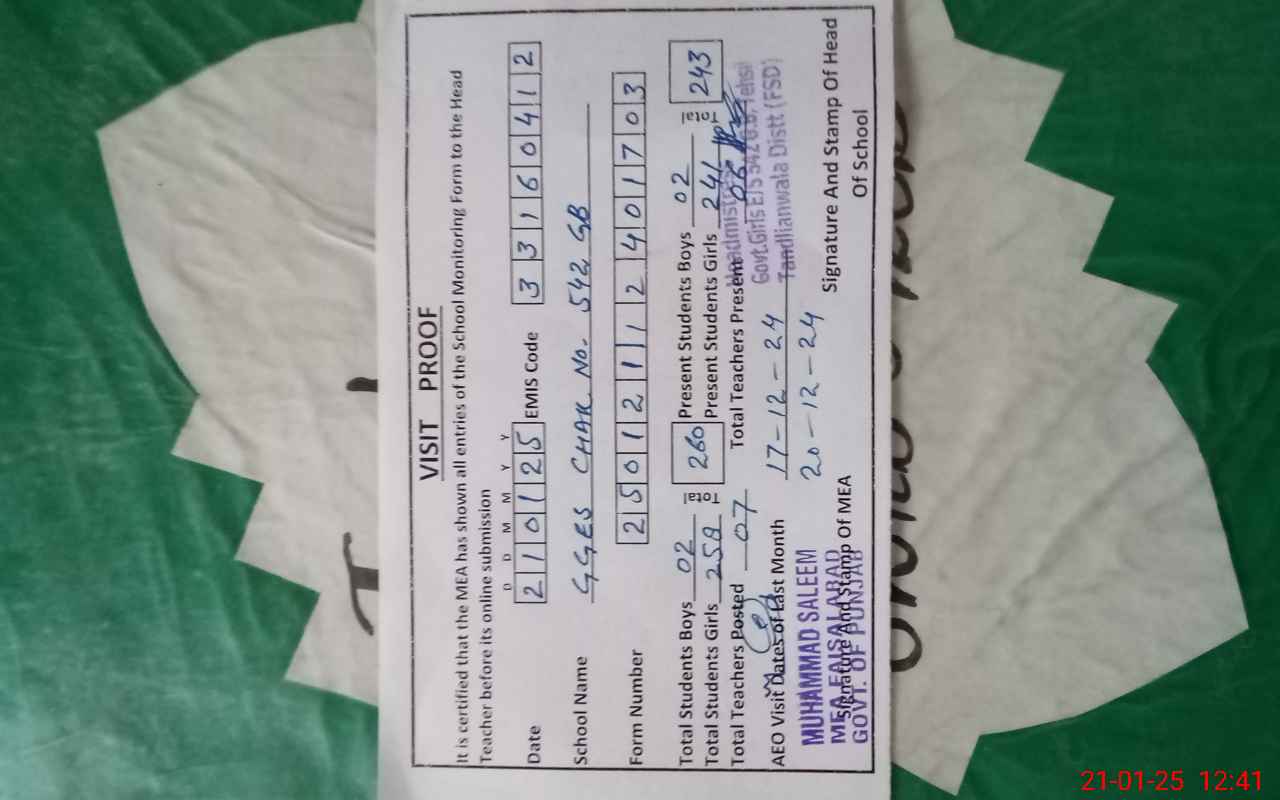 VISIT PROOF
It is certified that the MEA has shown all entries of the School Monitoring Form to the Head
Teacher before its online submission
D D M M Y Y
Date 2 1 0 1 2 5 EMIS Code 3 3 1 6 0 4 1 2
School Name GGES CHAK No. 542 GB
Form Number 2 5 0 1 2 1 1 1 2 4 0 1 7 0 3
Total Students Boys 02 Total 260 Present Students Boys 02 Total 243
Total Students Girls 258 Present Students Girls 241
Total Teachers Posted 07 Total Teachers Present 06
AEO Visit Dates of Last Month 17-12-24
20-12-24
Headmistress
Govt.Girls E/S 542 G.B, Tehsil
Tandlianwala Distt (FSD)
MUHAMMAD SALEEM
MEA FAISALABAD
GOVT. OF PUNJAB
Signature And Stamp Of MEA
Signature And Stamp Of Head
Of School
21-01-25 12:41